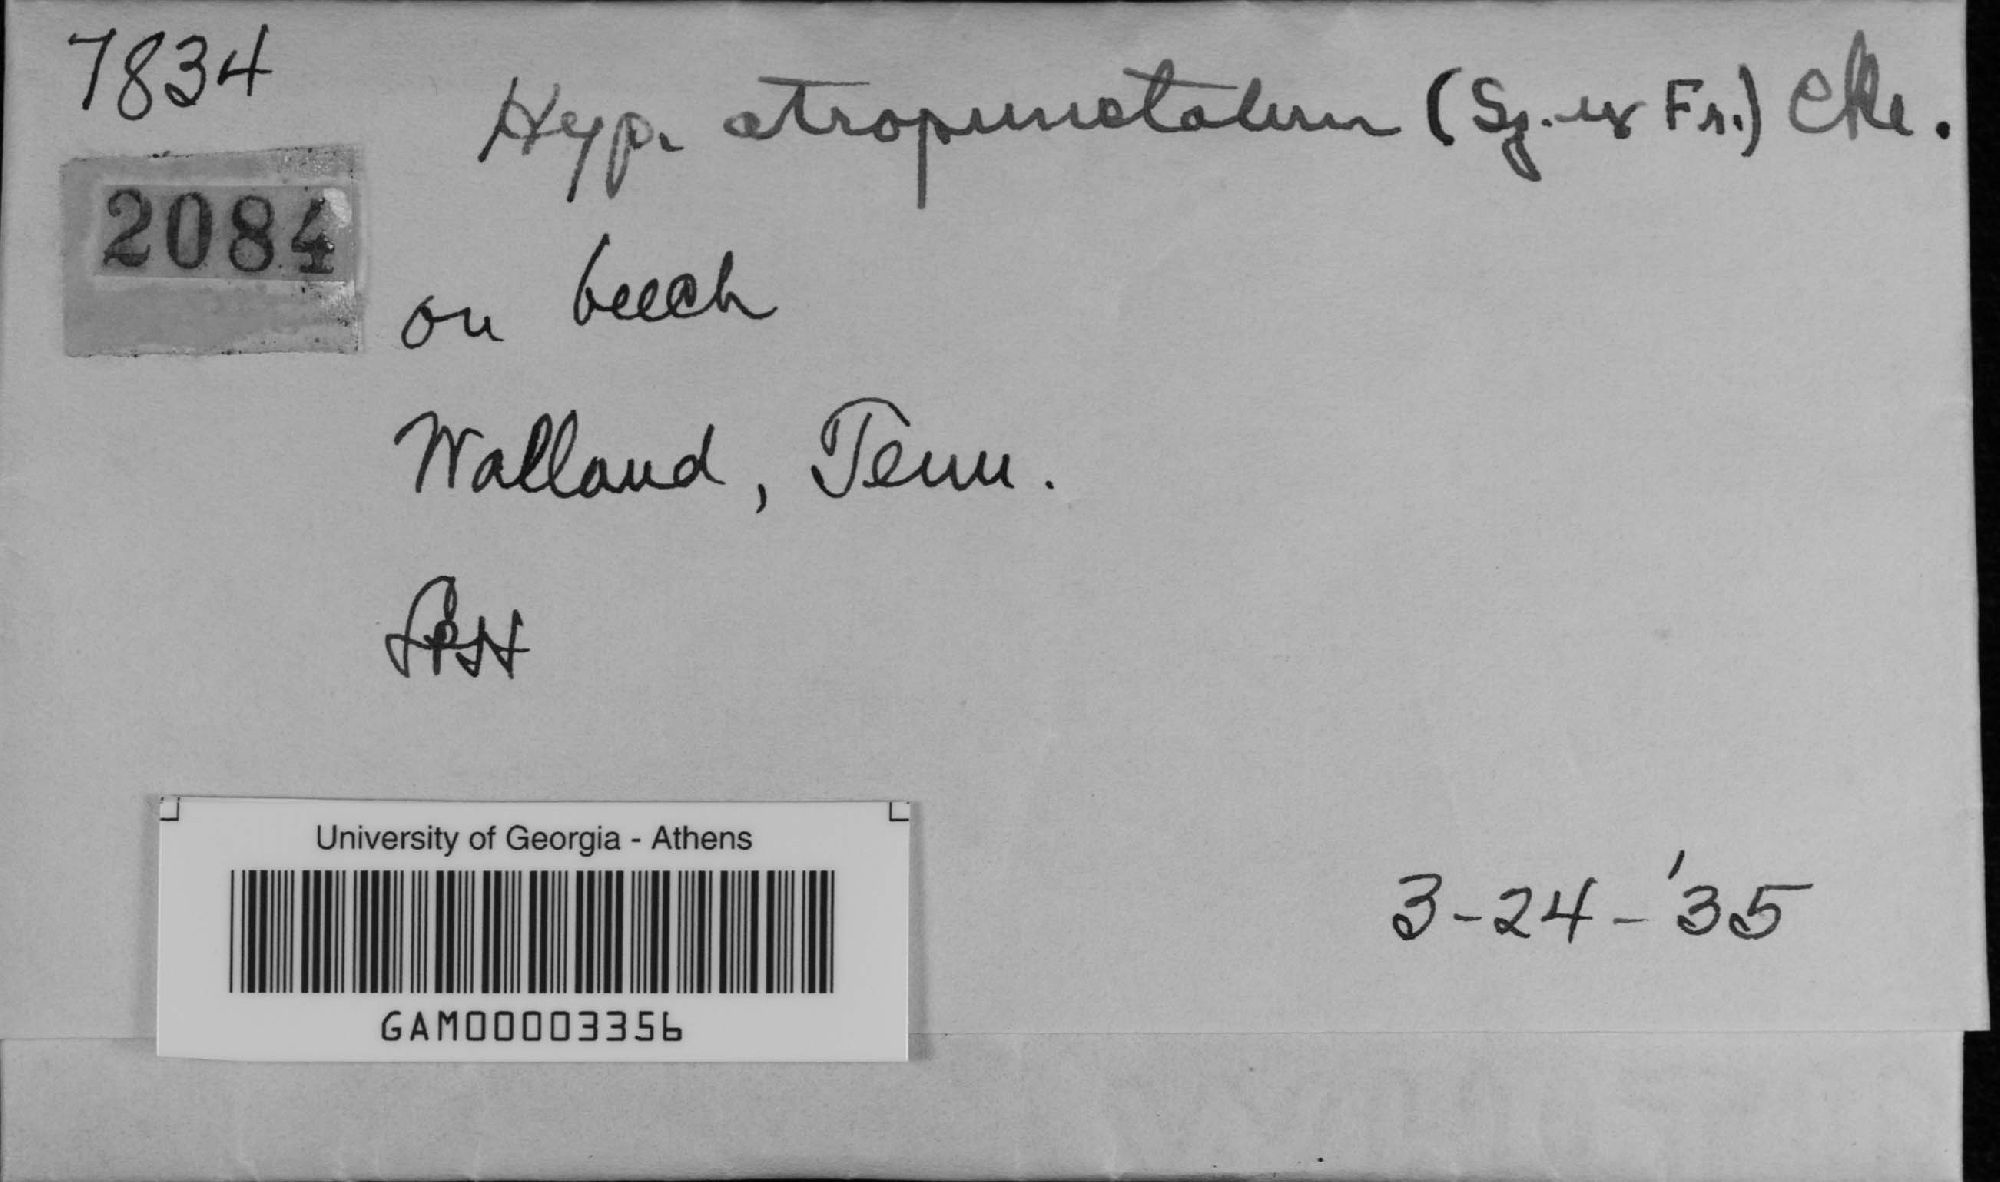 7834
Hyp. atropunctatum (Sz. ex Fr.) Cke.
2084
on beech
Walland, Tenn.
3-24-'35
University of Georgia - Athens
GAM00003356